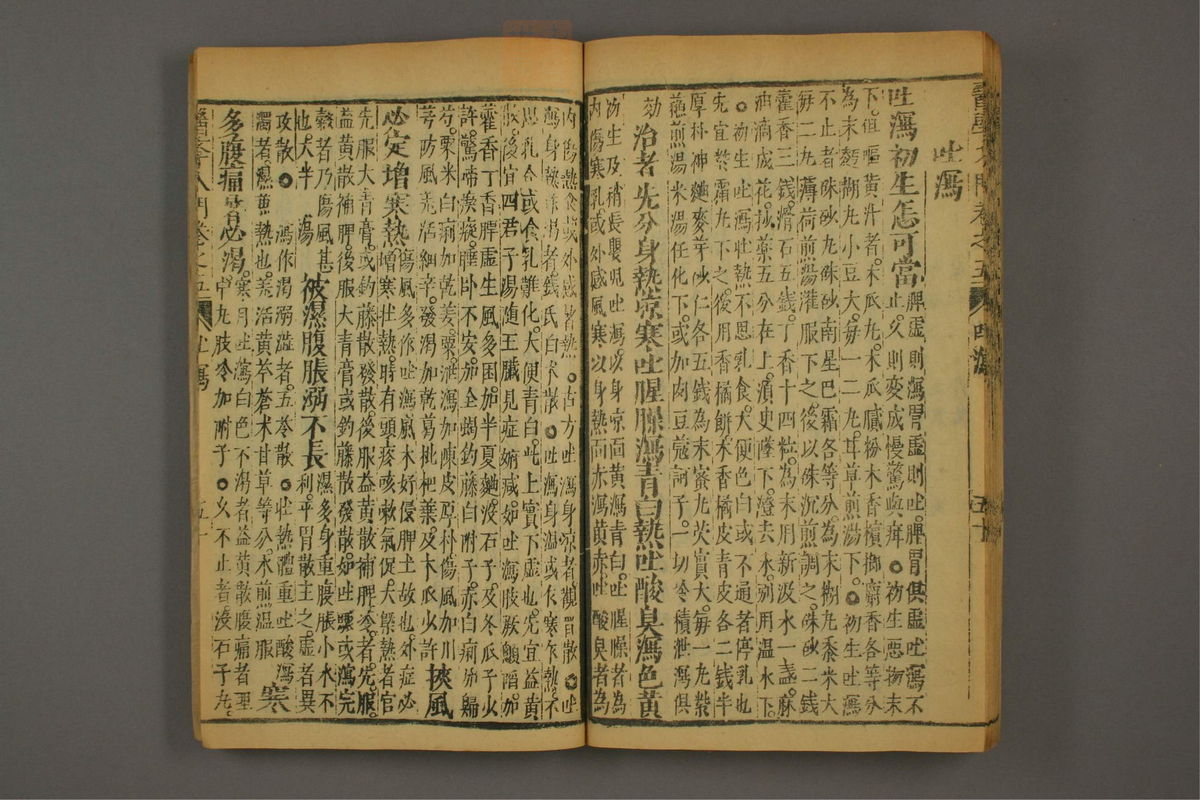 吐瀉
吐瀉初生怎可當脾虛則瀉胃虛則吐脾胃俱虛吐瀉不
止久則變成慢驚與疳○初生惡物未
下但嘔黃汁者木瓜丸木瓜膩粉木香檳榔麝香各等分
為末麪糊丸小豆大每一二丸甘草煎湯下○初生吐瀉
不止者硃砂丸硃砂南星巴霜各等分為末糊丸黍米大
每二九薄荷煎湯灌服下之後以硃沉煎調之硃砂二錢
藿香三錢滑石五錢丁香十四粒為末用新汲水一盞麻
油滴成花抄藥五分在上須史墜下澄去水別用溫水下
○初生吐瀉壯熱不思乳食大便色白或不通者停乳也
先宜紫霜丸下之後用香橘餅木香橘皮青皮各二錢半
厚朴神麯麥芽砂仁各五錢為末蜜丸芡實大每一丸紫
蘇煎湯米湯任化下或加肉豆蔻訶子一切冷積泄瀉俱
効治者先分身熱涼寒吐腥臊瀉青白熱吐酸臭瀉色黃
初生及稍長嬰兒吐瀉以身凉面黃瀉青白吐腥臊者為
內傷寒乳或外感風寒以身熱面赤瀉黃赤吐酸臭者為
內傷熱食或外感暑熱古方吐瀉身凉者觀音散○吐
瀉身熱者錢氏白朮散○吐瀉身溫或乍寒乍熱不
思乳食或食乳難化大便青白此上實下虛也先宜益黃
散後宜四君子湯隨五臟見症加減如吐瀉肢厥顱䐉加
藿香丁香脾虛生風多困加半夏麯沒石子及冬瓜子火
許驚啼瘈瘲睡卧不安加全蝎鈎藤白附子赤白痢加歸
芍粟米白痢加乾姜粟泄瀉加陳皮厚朴傷風加川
芎防風羌活細辛發渴加乾葛枇杷葉及木瓜火許挾風
必定增寒熱傷風多作吐瀉風木好侵脾土故也外症必
增寒壯熱時有頭疼咳嗽氣促大槩熱者宜
先服大青膏或鈎藤散發散後服益黃散補脾冷者先服
益黃散補脾後服大青膏或鈎藤散發散如吐噁或瀉完
穀者乃傷風甚被濕腹脹溺不長濕多身重腹脹小水不
利平胃散主之虛者異
攻散○瀉作渴溺澁者五苓散○壯熱體重吐酸瀉
濁者濕兼熱也羌活黃芩蒼朮甘草等分水煎溫服寒
多腹痛暑必渴寒月吐瀉白色不渴者益黃散腹痛者理
中九肢冷加附子○久不止者沒石子九